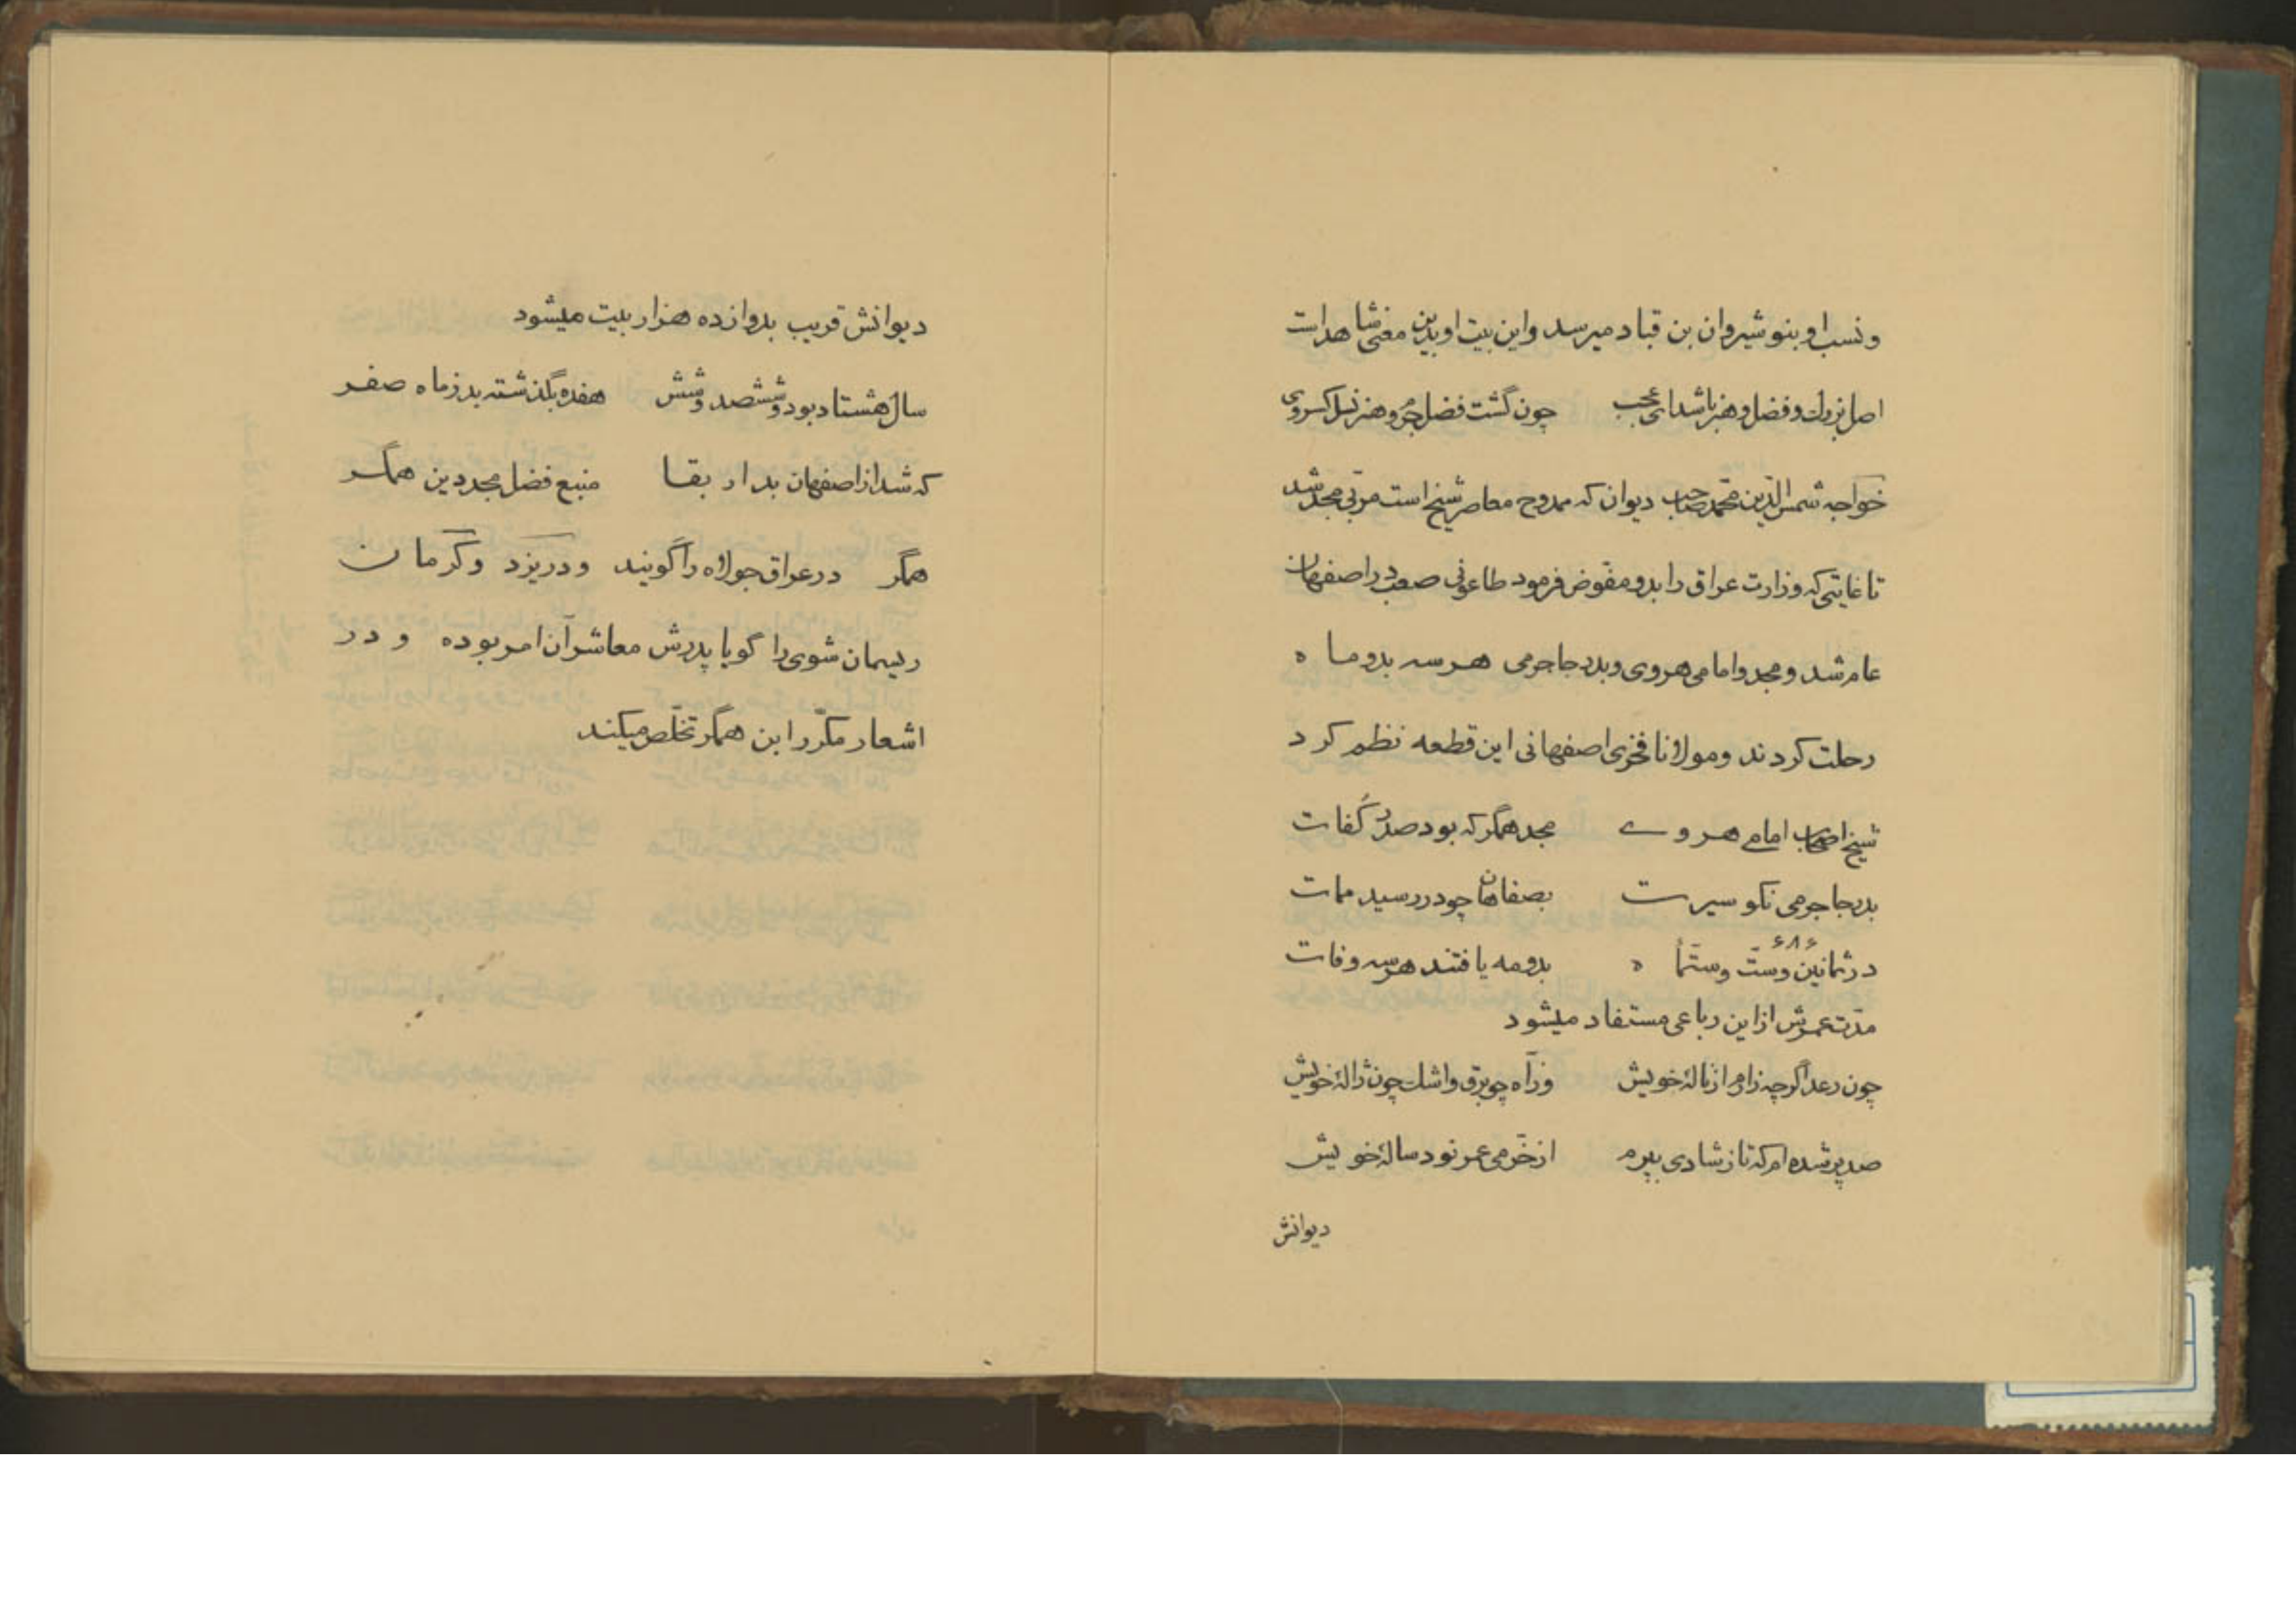 و نسب او بنوشیروان بن قباد میرسد و این بیت او بدین معنی شاهد است
اصل بزرك و فضل و هنر باشد ای عجب چون گشت فضل جرم و هنر نسل کسروی
خواجه شمس الدّین محمّد صاحب دیوان که ممدوح معاصر شیخ است مربّی مجد شد
تا غایتی که وزارت عراق را بدو مفوّض فرمود طاعونی صعب در اصفهان
عام شد و مجد و امامی هروی و بدر جاجرمی هر سه بدو ماه
رحلت کردند و مولانا فخری اصفهانی این قطعه نظم کرد
شیخ اصحاب امامے هروے مجد همگر که بود صدر کُفات
بدر جاجرمی نکو سیرت بصفاهان چو در رسید ممات
۶۸۶
در ثمانین و ستّ و ستّمأه بدو مه یافتند هر سه وفات
مدّت عمرش از این رباعی مستفاد میشود
چون رعد اگرچه زارم از نالهٔ خویش وز آه چو برق و اشك چون ژالهٔ خویش
صد پر شده ام که تا ز شادی بپرم از خرّمی عمر نود سالهٔ خویش
دیوانش
دیوانش قریب بدوازده هزار بیت میشود
سال هشتاد بود و ششصد و شش هفده بگذشته بد ز ماه صفر
که شد از اصفهان بدار بقا منبع فضل مجد دین همگر
همگر در عراق جولاه را گویند و در یزد و کرمان
ریسمان شوی را گویا پدرش معاشر آن امر بوده و در
اشعار مکرّر ابن همگر تخلّص میکند